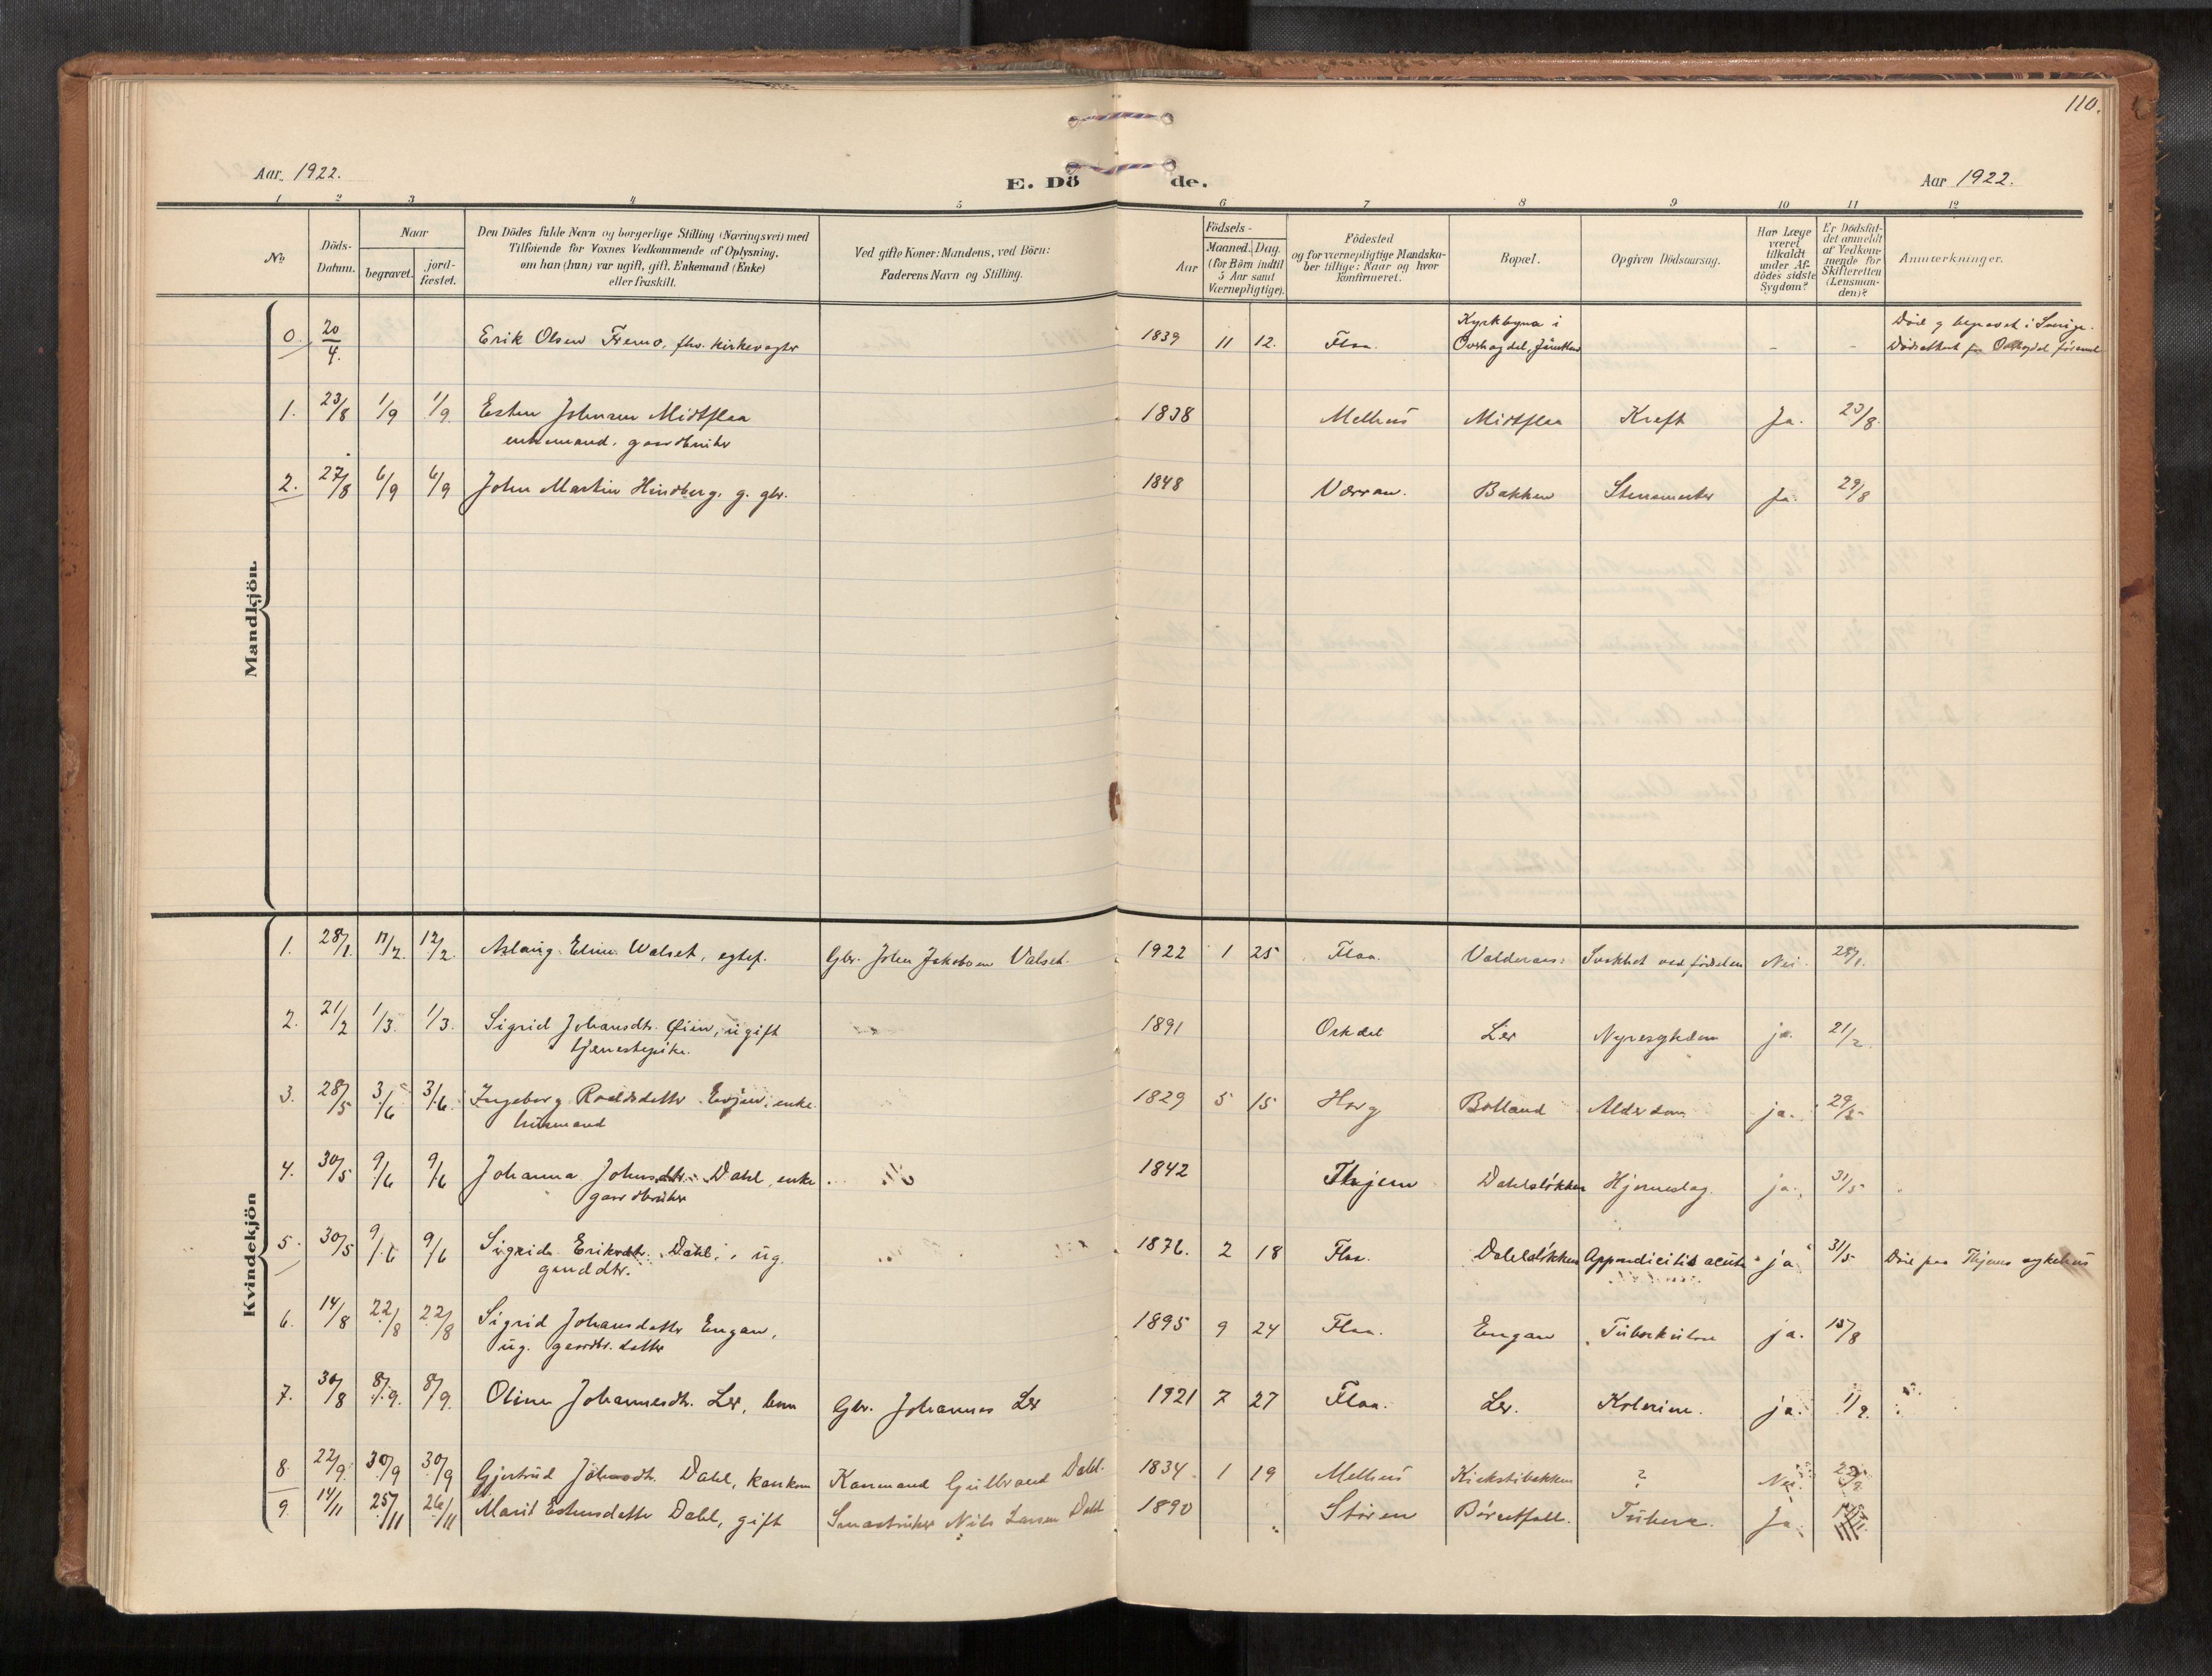 110.
Aar 1922.
E. Dö de.
Aar 1922.
1 2 3 4 5 6 7 8 9 10 11 12
No
Döds-Datum.
Naar
begravet.
jord-fæstet.
Den Dödes fulde Navn og borgerlige Stilling (Næringsvei) med
Tilføiende for Voxnes Vedkommende af Oplysning,
om han (hun) var ugift, gift, Enkemand (Enke)
eller fraskilt.
Ved gifte Koner: Mandens, ved Börn:
Faderens Navn og Stilling.
Födsels-
Aar
Maaned. Dag.
(for Börn indtil
5 Aar samt
Værnepligtige).
Födested
og for værnepligtige Mandska-
ber tillige: Naar og hvor
konfirmeret.
Bopæl.
Opgiven Dödsaarsag.
Har Læge
været
tilkaldt
under Af-
dödes sidste
Sygdom?
Er Dödsfal-
det anmeldt
af Vedkom-
mende for
Skifteretten
(Lensman-
den)?
Anmærkninger.
Mandkjön.
0. 20/4. Erik Olsen Fremo, fhv. kirkevegter 1839 11 12. Flaa. Kyrkbyna i - - Död g begravet i Sverige.
1. 23/8 1/9 1/9 Esten Johnsen Midtflaa 1838 Melhus Midtflaa Kræft Ja. 23/8.
enkemand, gaardbruker
2. 27/8 6/9 6/9 John Martin Hindberg, g. gbr. 1848 Værran. Bakken Ja. 29/8
Kvindekjön
1. 28/1. 12/2. 12/2. Aslaug Elin Walset, egtef. Gbr. John Jakobsen Valset. 1922 1 25 Flaa. Valderaas Svakhet ved födselen Nei 28/1.
2. 21/2 1/3. 1/3. Sigrid Johansdtr. Øien, ugift 1891 Orkdal Ler Nyresygdom ja. 21/2
tjenestepike.
3. 28/5 3/6 3/6. Ingeborg Roaldsdatter Evjen, enke 1829 5 15 Horg Bolland Alderdom ja. 29/5
husmand
4. 30/5 9/6 9/6 Johanna Johnsdtr. Dahl, enke 1842 Thjem Dahlsløkken Hjerneslag. ja. 31/5
gaardbruker
5. 30/5 9/6 9/6 Sigrid Eriksdtr. Dahl, ug. 1876. 2 18 Flaa. Dahlsløkken Appendicitis acuta ja 31/5 Död paa Thjems sykehus
gaarddtr.
6. 14/8 22/8 22/8 Sigrid Johansdatter Engan, 1895 9 24 Flaa. Engan Tuberkulose ja. 15/8
ug. gaardbr. datter
7. 30/8 8/9. 8/9. Oline Johannesdtr. Ler, barn Gbr. Johannes Ler 1921 7 27 Flaa. Ler. Kolerine. ja. 1/9.
8. 22/9. 30/9 30/9 Gjertrud Johnsdtr. Dahl, Gulbrand Dahl. 1834 1 19 Melhus ? Nei.
9. 14/11 25/11 26/11 Marit Estensdatter Dahl, gift Smaabruker Nils Larsen Dahl 1890 Støren Børsetfall. Ja.